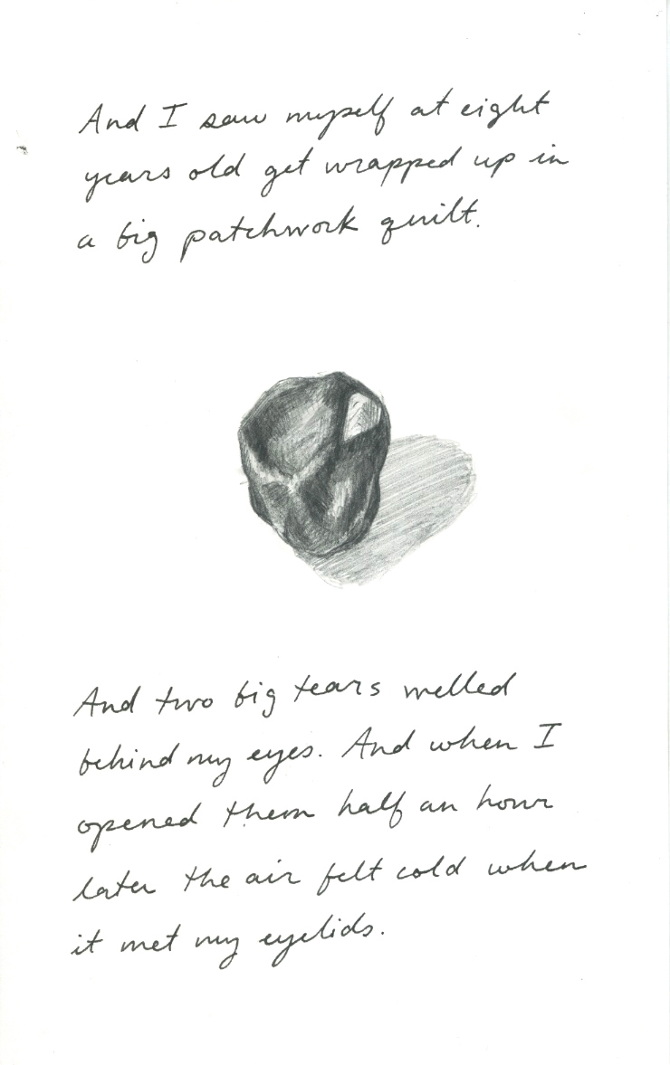 And I saw myself at eight
years old get wrapped up in
a big patchwork quilt.
And two big tears welled
behind my eyes. And when I
opened them half an hour
later the air felt cold when
it met my eyelids.